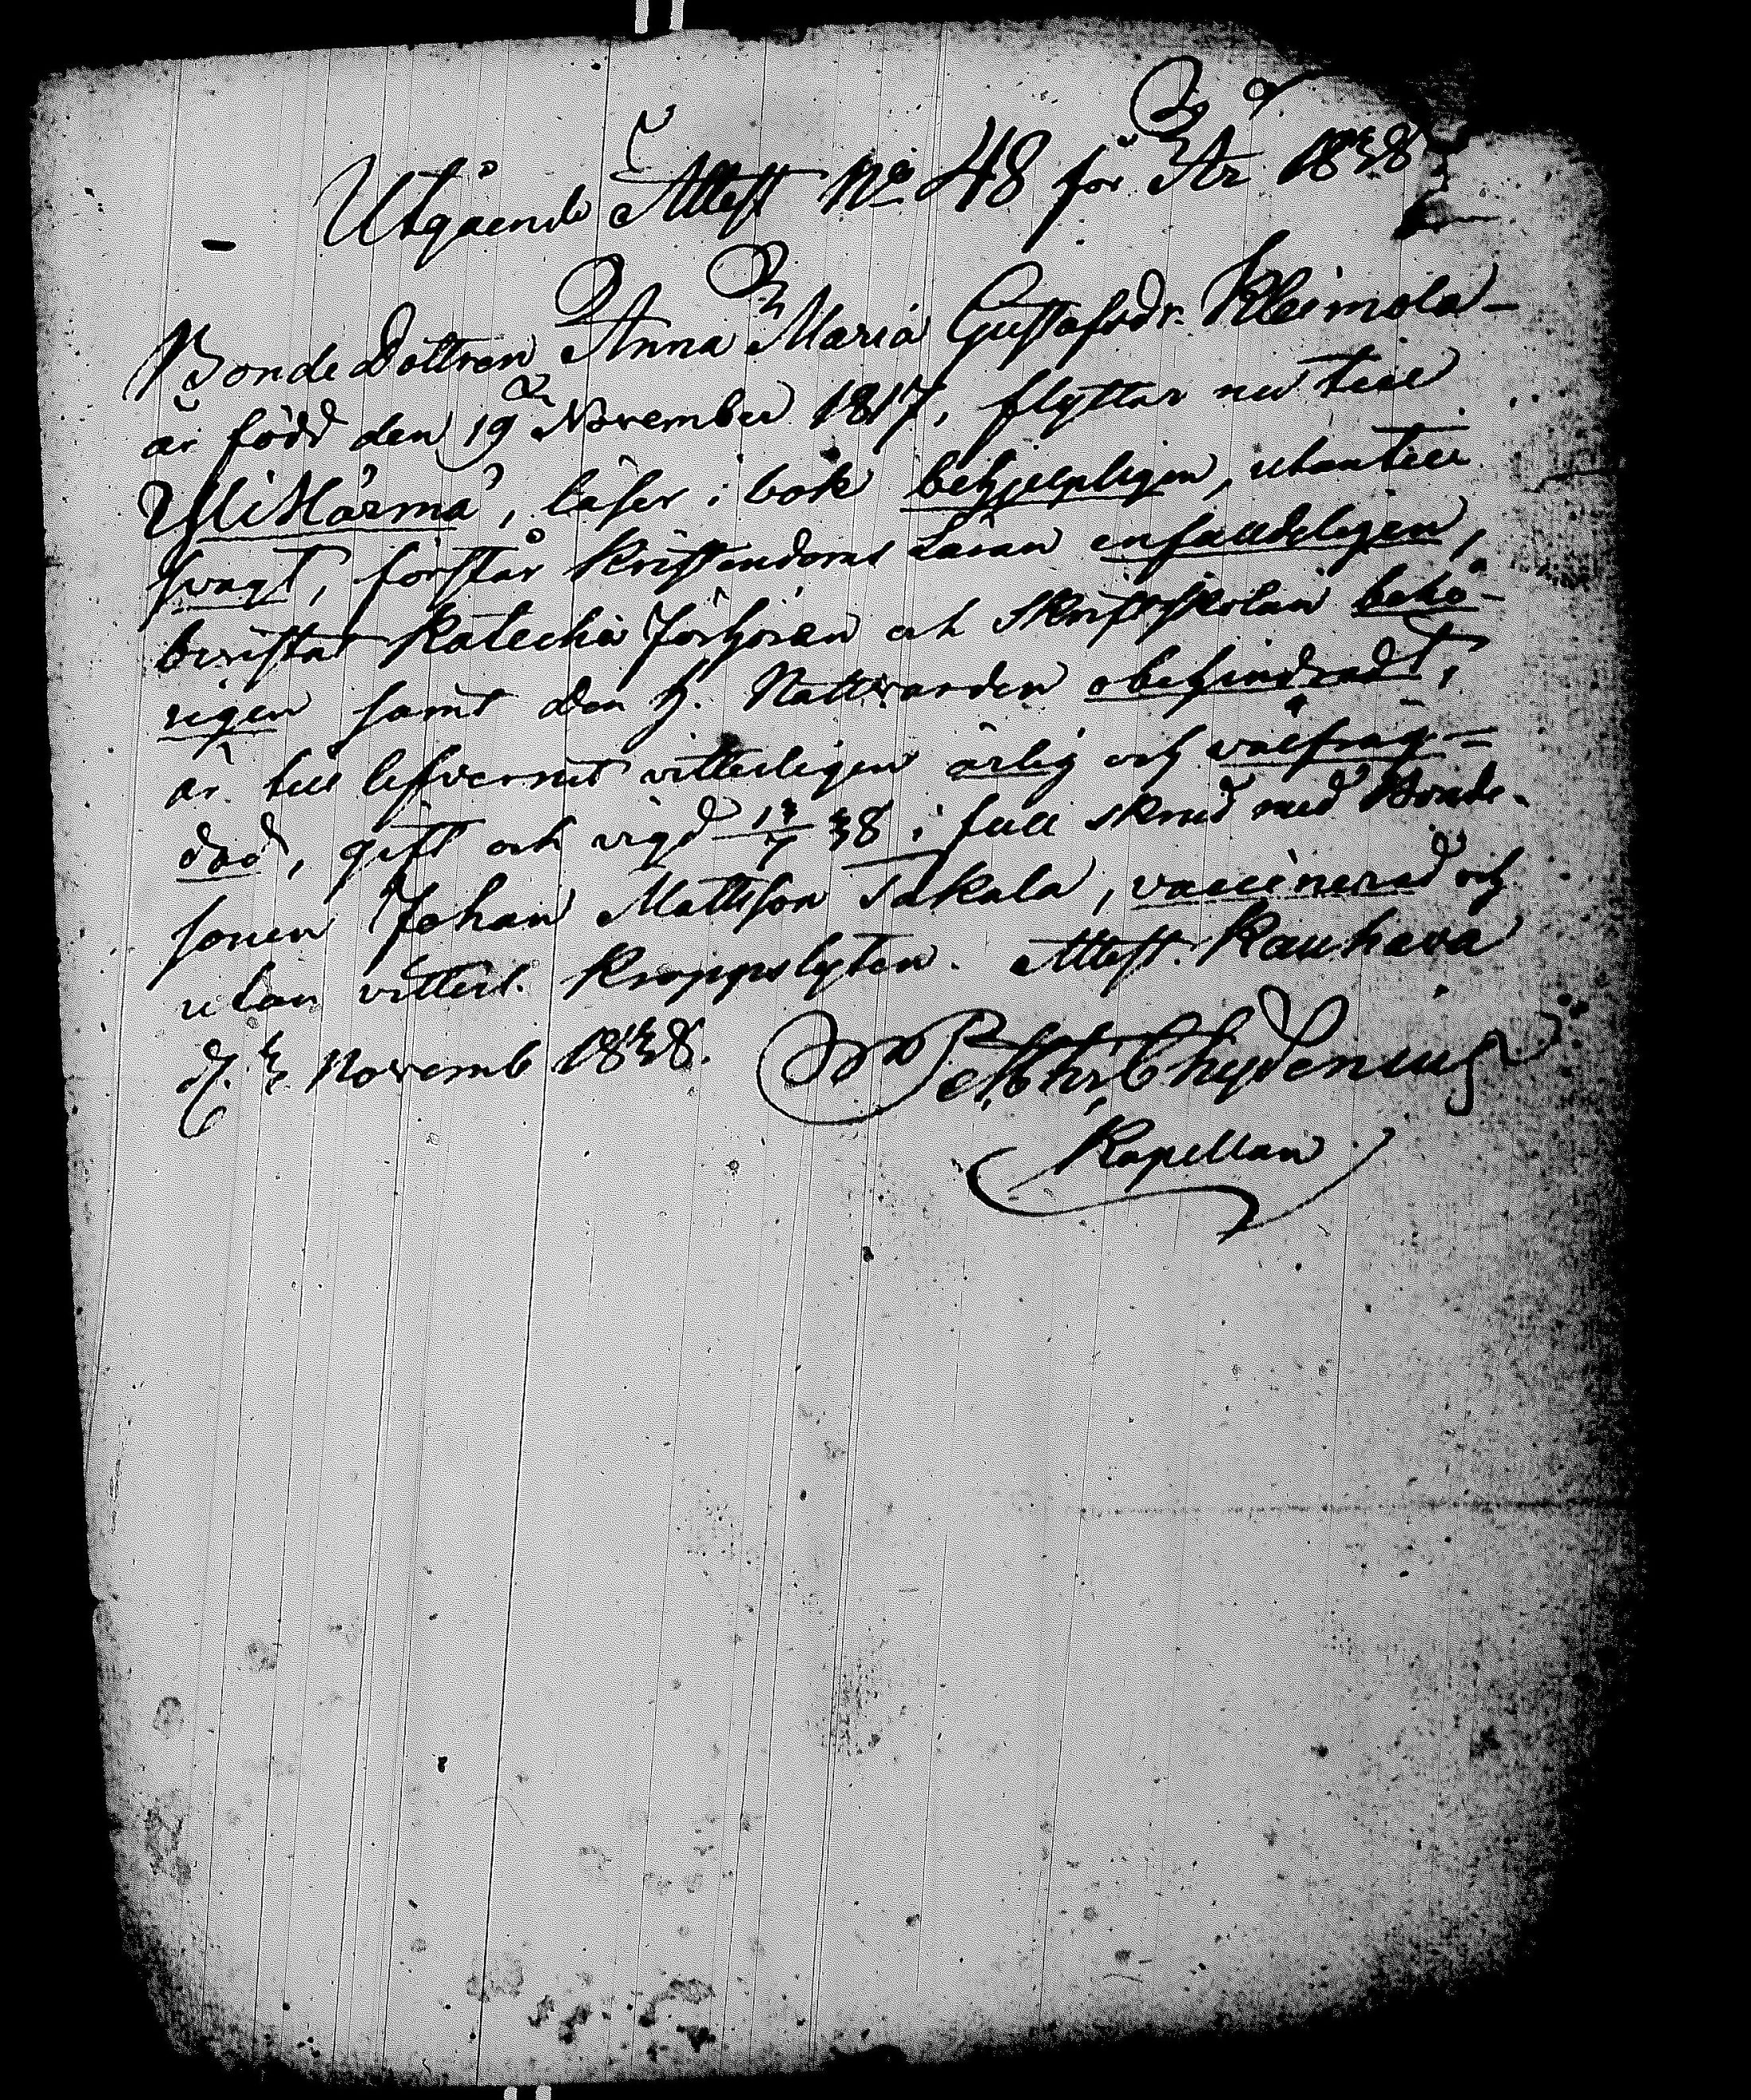 Utgående Attest No 48 för År 1838
Bonde Dottren Anna Maria Gustafsdr. Kleimola
är född den 19 November 1817, flyttar nu till
YliHärmä, läser i bok behjelpligen, utantill
svagt, förstår Kristendoms Läran enfalldeligen,
bevistat Katechis Förhören och Skriftskolan behö-
rigen samt den H. Nattvarden obehindradt,
är till lefvernet vitterligen ärlig och välfräg-
dad, gift och vigd 13/7 38 i full skrud med Bonde-
sonen Johan Mattsson Takala, vaccinerad och
utan vitterl. Kroppslyten. Attest. Kauhava
d. 3 Novemb 1838.
Chydenius
Kapellan